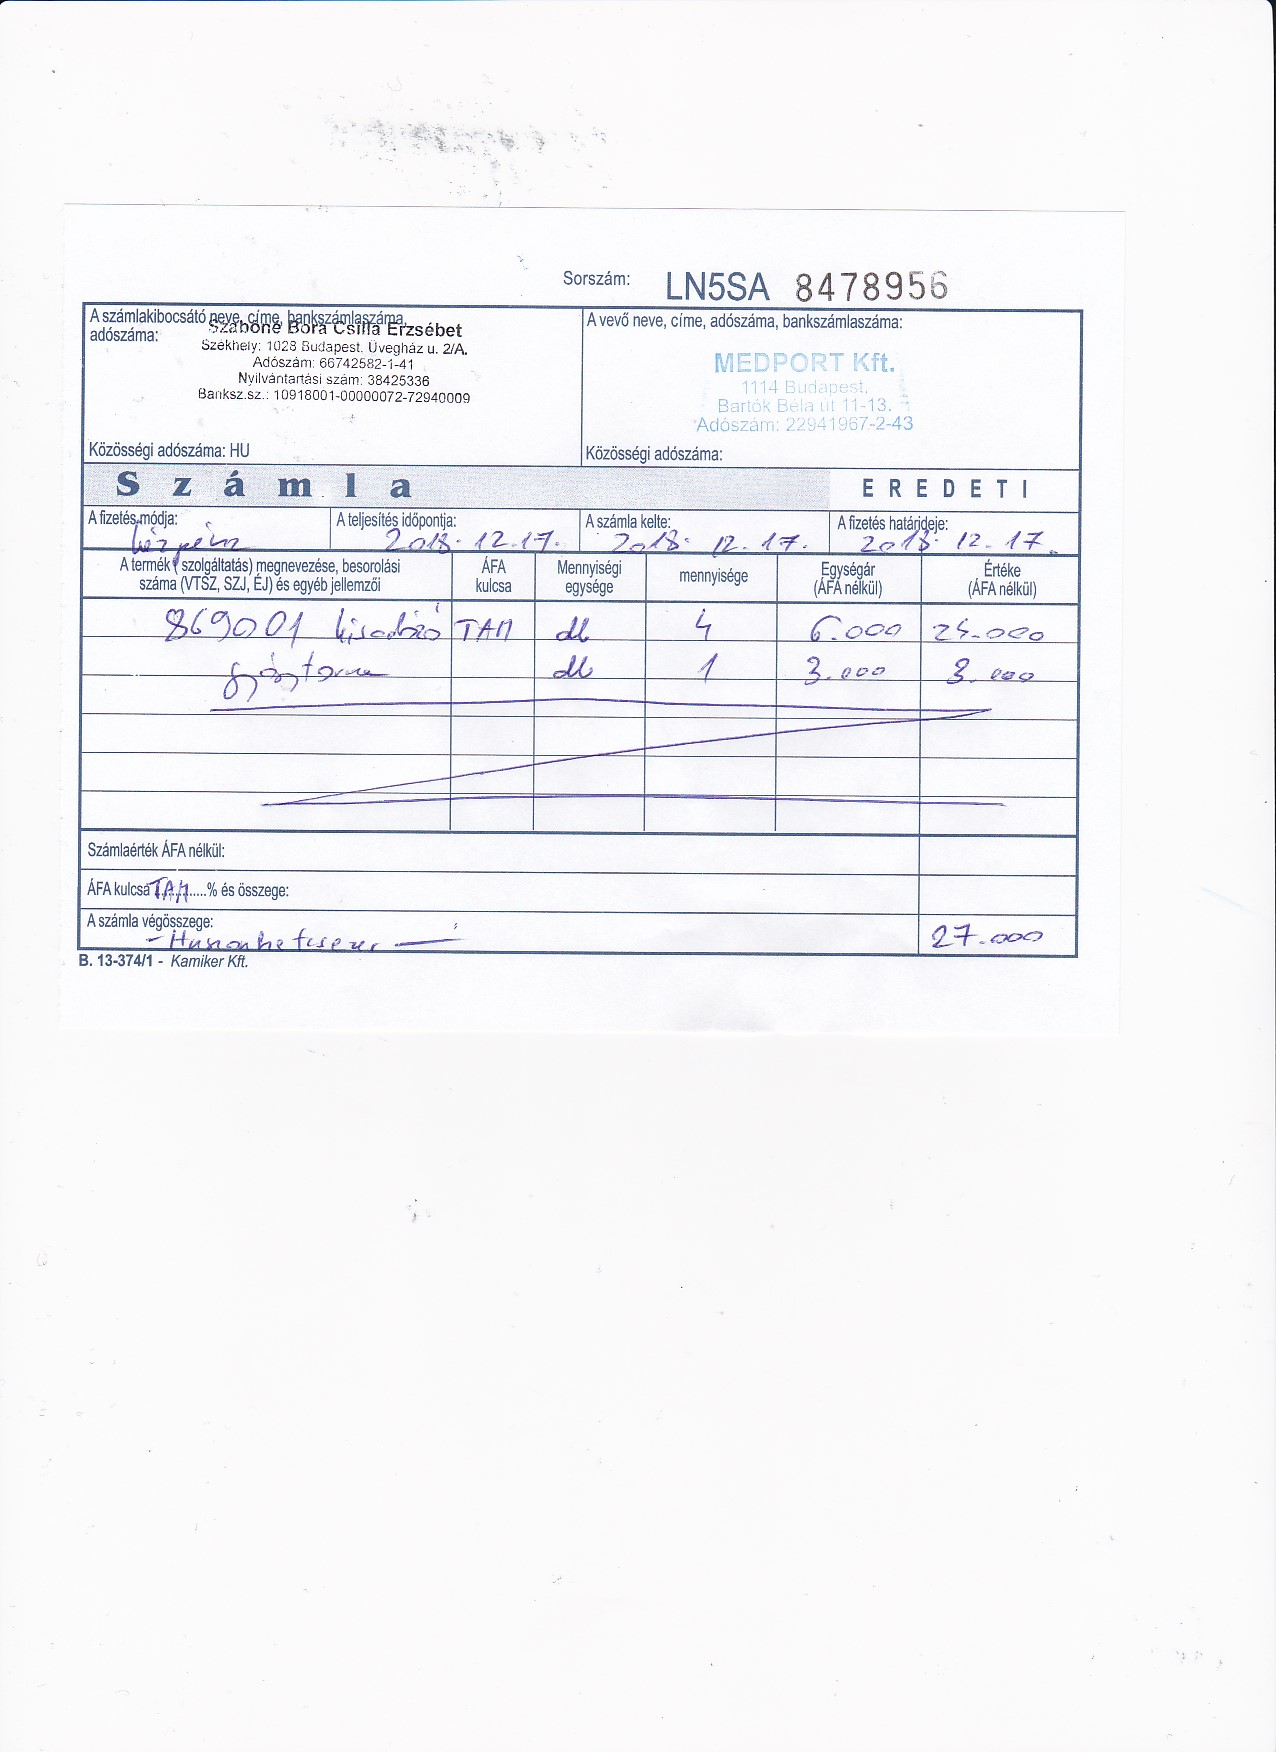 Sorszám: LN5SA 8478956
A számlakibocsátó neve, címe, bankszámlaszáma,
adószáma:
Szabóné Bora Csilla Erzsébet
Székhely: 1028 Budapest, Üvegház u. 2/A.
Adószám: 66742582-1-41
Nyilvántartási szám: 38425336
Banksz.sz.: 10918001-00000072-72940009
Közösségi adószáma: HU
A vevő neve, címe, adószáma, bankszámlaszáma:
MEDPORT Kft.
1114 Budapest,
Bartók Béla út 11-13.
Adószám: 22941967-2-43
Közösségi adószáma:
Számla EREDETI
A fizetés módja: A teljesítés időpontja: A számla kelte: A fizetés határideje:
készpénz 2018. 12.17. 2018. 12. 17. 2018. 12. 17.
A termék (szolgáltatás) megnevezése, besorolási
száma (VTSZ, SZJ, ÉJ) és egyéb jellemzői
ÁFA
kulcsa
Mennyiségi
egysége
mennyisége
Egységár
(ÁFA nélkül)
Értéke
(ÁFA nélkül)
869001 TAM db 4 6.000 24.000
gyógytorna db 1 3.000 3.000
Számlaérték ÁFA nélkül:
ÁFA kulcsa TAM.....% és összege:
A számla végösszege:
- Huszonhétezer - 27.000
B. 13-374/1 - Kamiker Kft.